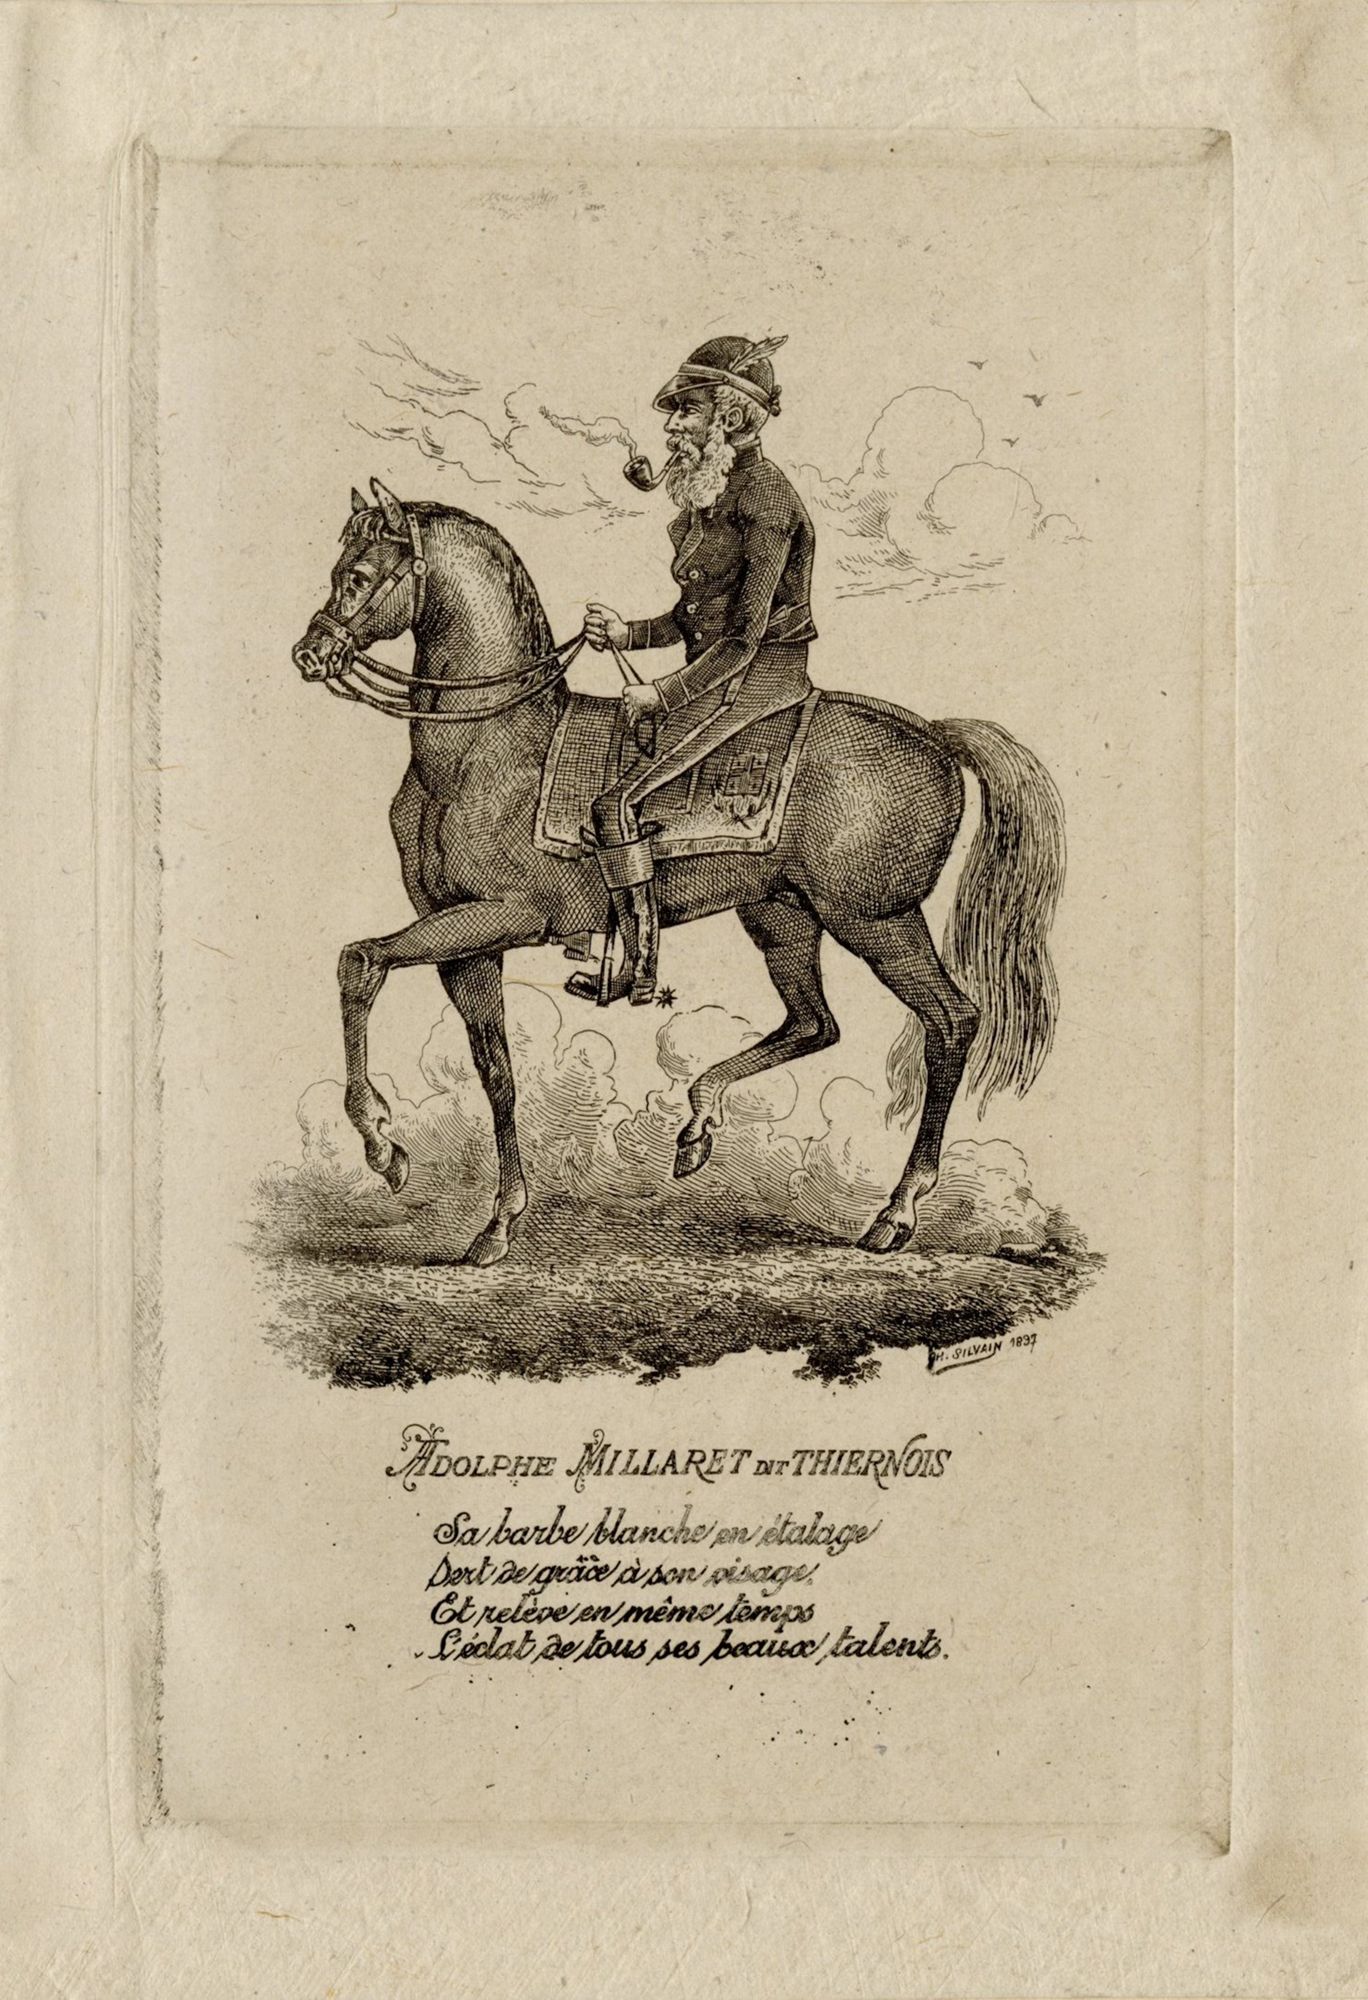 PH. SILVAIN 1897
ADOLPHE MILLARET DIT THIERNOIS
Sa barbe blanche en étalage
Sert de grâce à son visage.
Et relève en même temps
L'éclat de tous ses beaux talents.